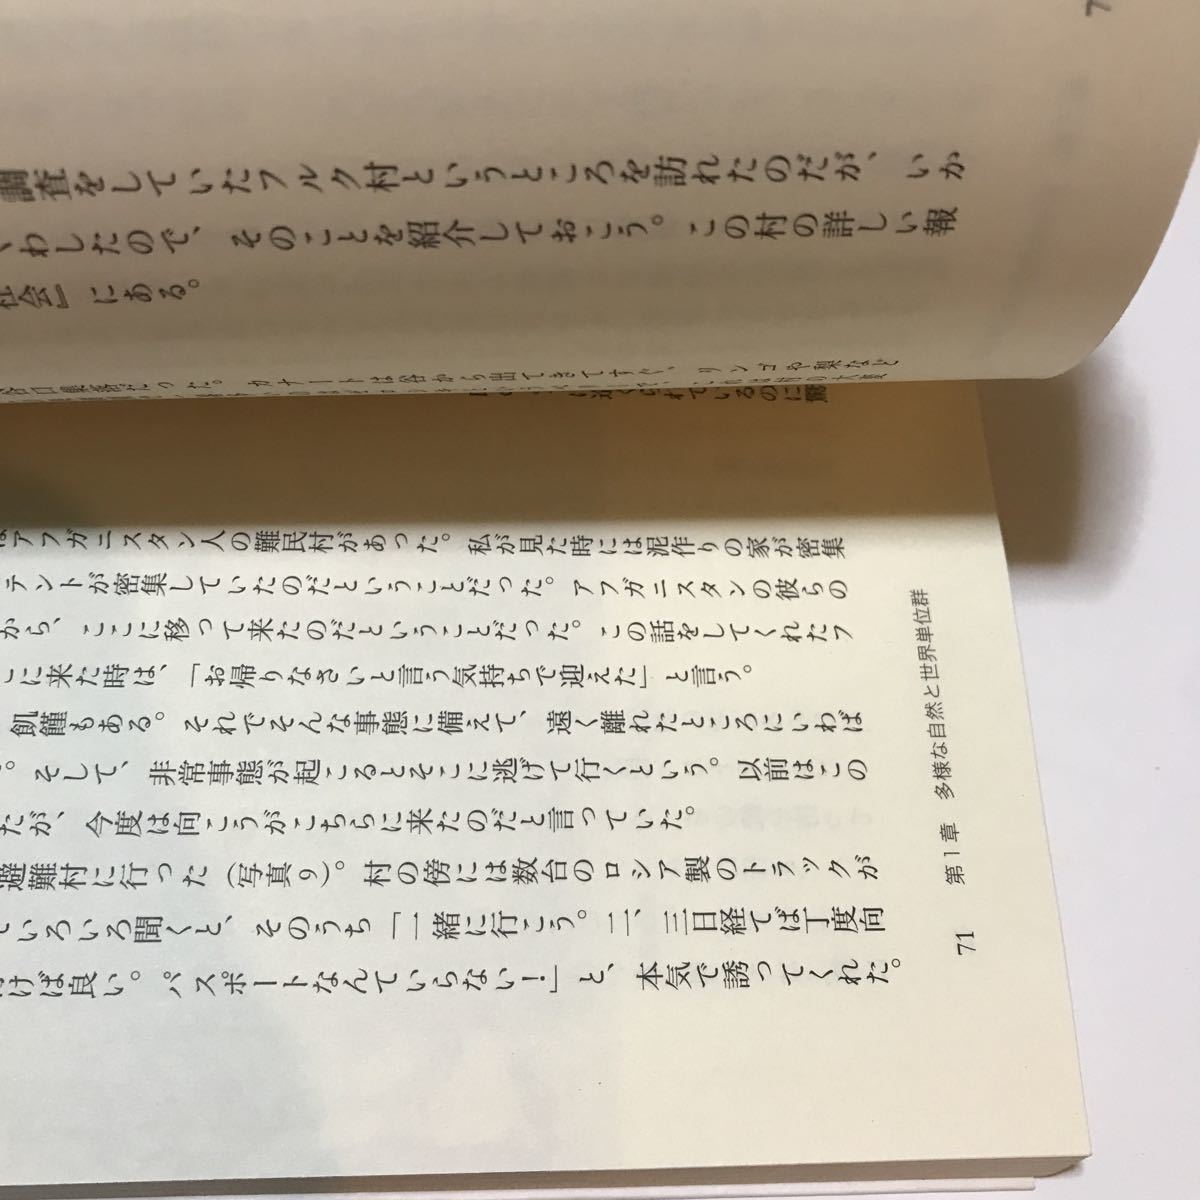 調査をしていたフルク村というところを訪れたのだが、いか
くわしたので、そのことを紹介しておこう。この村の詳しい報
社会』にある。
谷口集落だった。カナートは谷から出てきてすぐ、リンゴや梨など
られているのに驚
はアフガニスタン人の難民村があった。私が見た時には泥作りの家が密集
テントが密集していたのだということだった。アフガニスタンの彼らの
から、ここに移って来たのだということだった。この話をしてくれたフ
こに来た時は、「お帰りなさいと言う気持ちで迎えた」と言う。
飢饉もある。それでそんな事態に備えて、遠く離れたところにいわば
。そして、非常事態が起こるとそこに逃げて行くという。以前はこの
だが、今度は向こうがこちらに来たのだと言っていた。
避難村に行った（写真9）。村の傍には数台のロシア製のトラックが
ていろいろ聞くと、そのうち「一緒に行こう。二、三日経てば丁度向
けば良い。パスポートなんていらない！」と、本気で誘ってくれた。
第1章 多様な自然と世界単位群
71